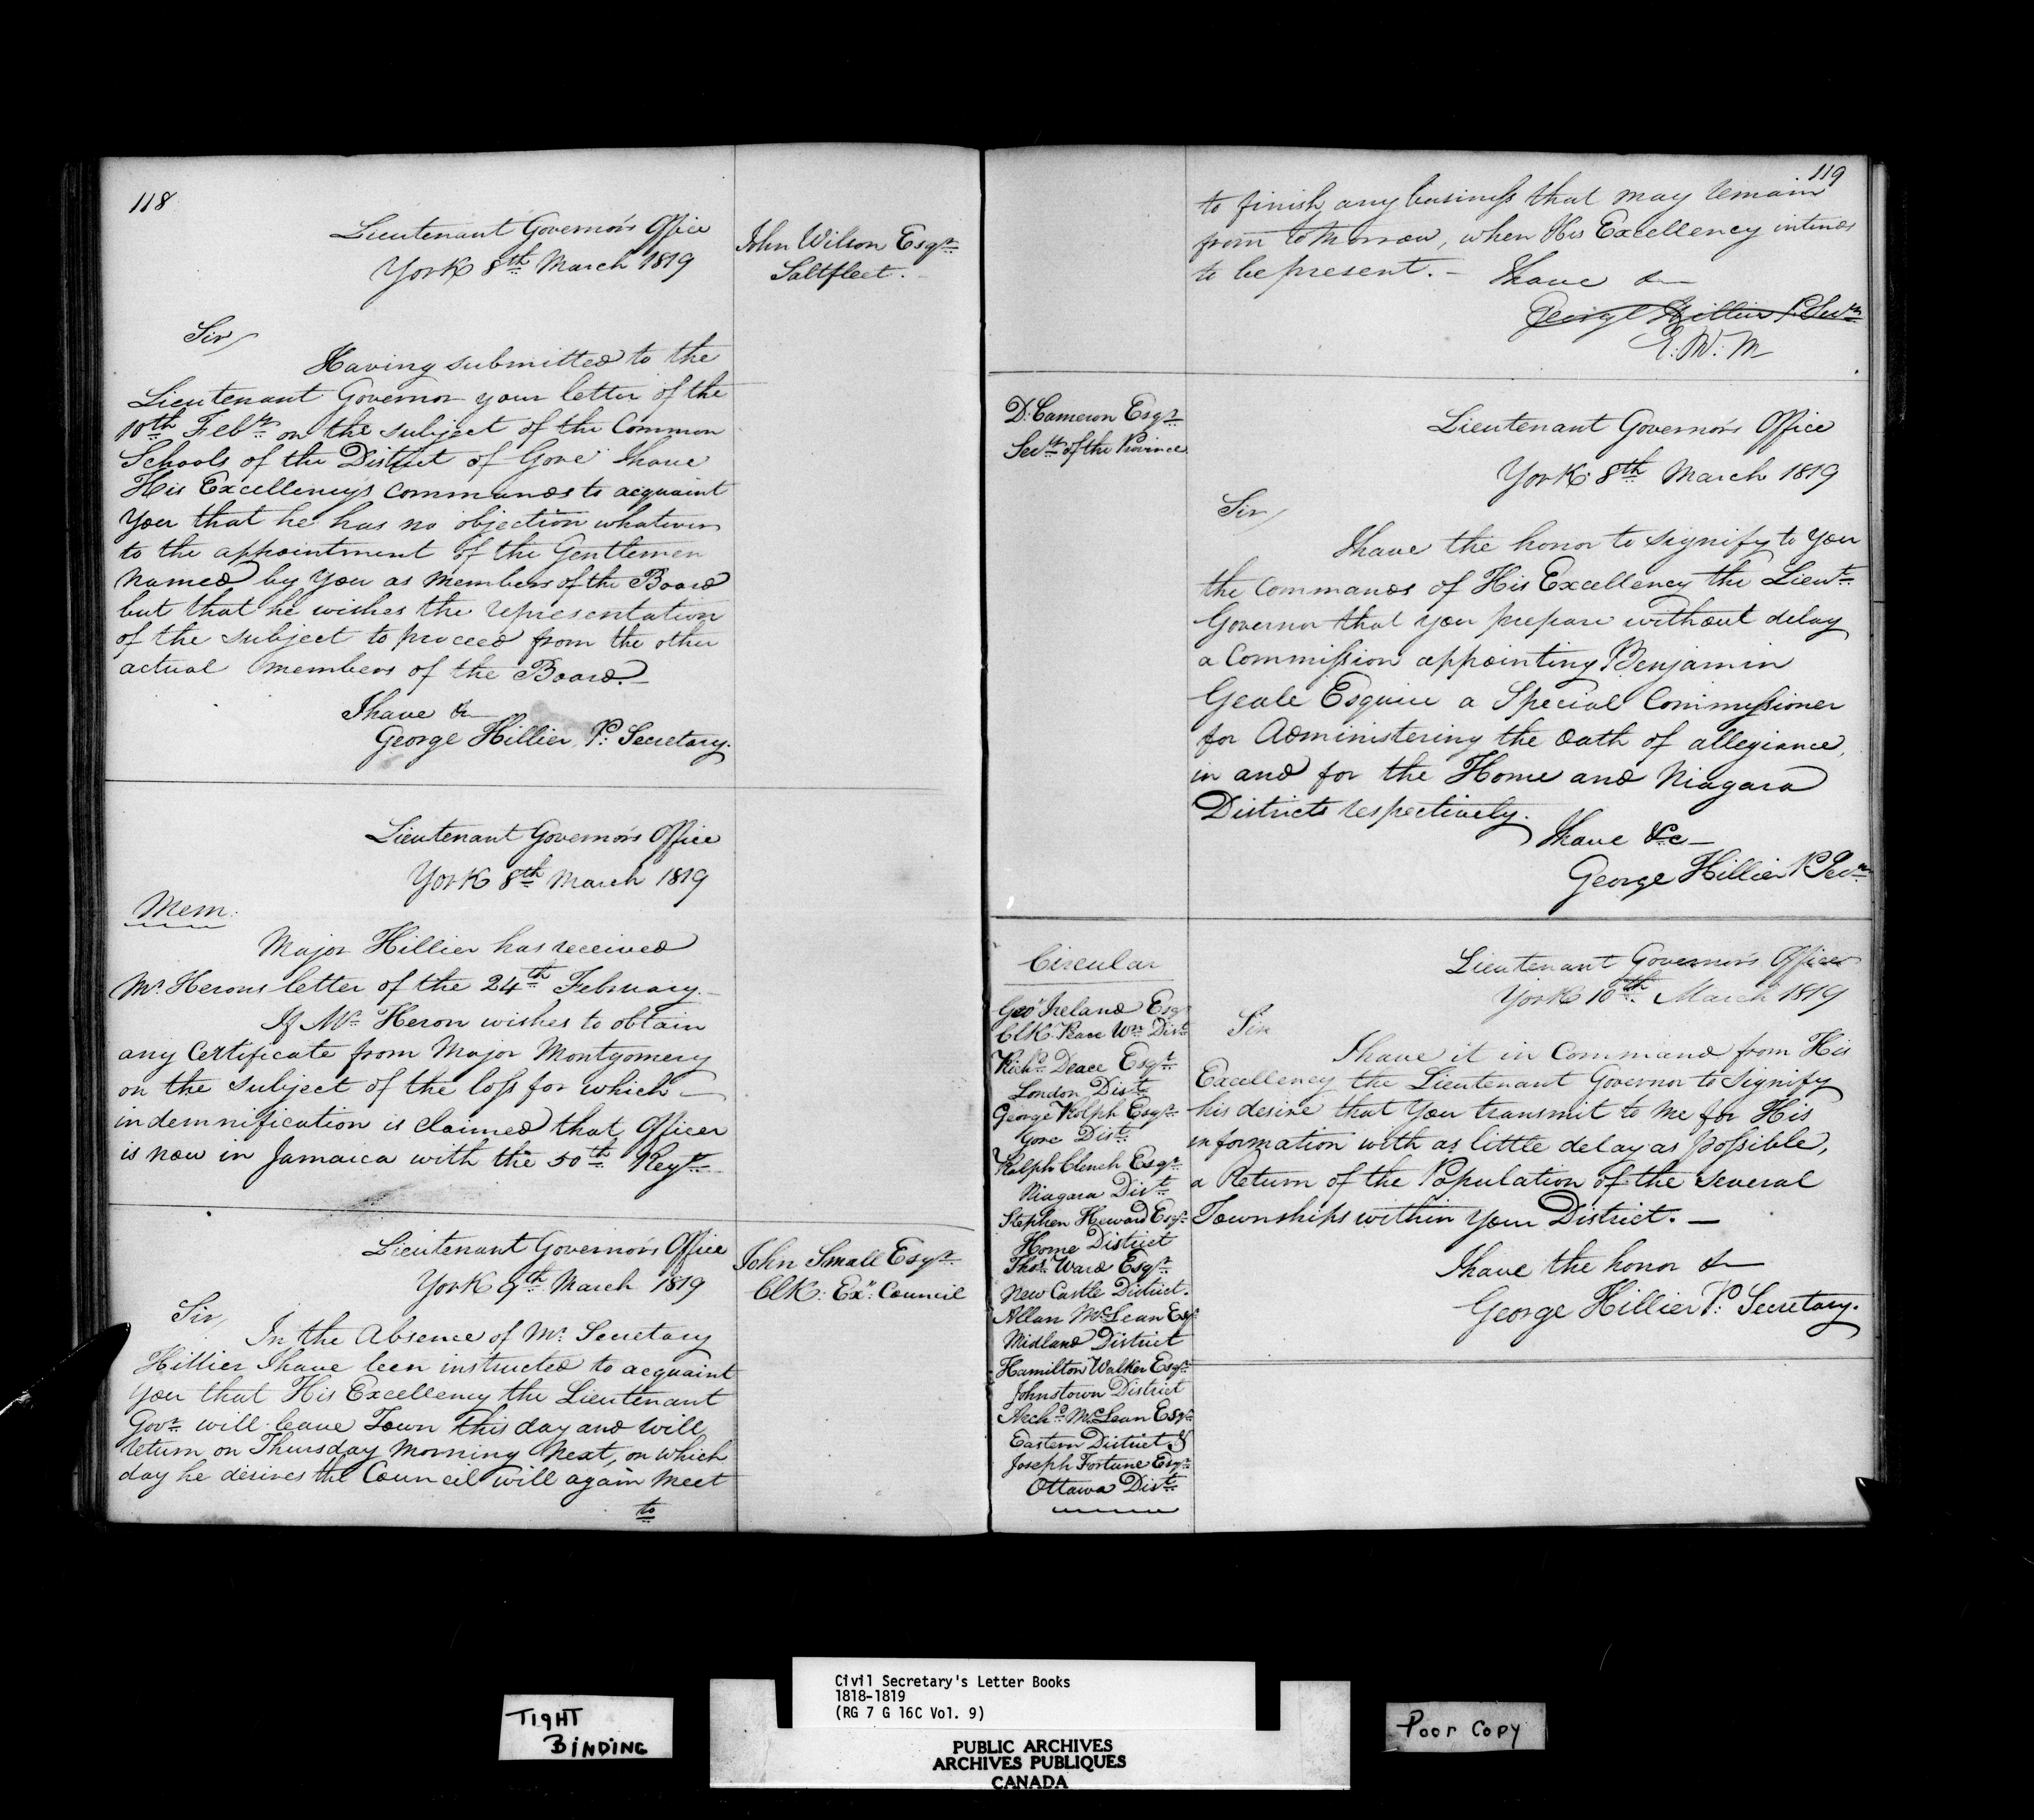 118
Lieutenant Governor's Office
York 8th March 1819
John Wilson Esqr
Saltfleet.
Sir
Having submitted to the
Lieutenant Governor your letter of the
10th Feby on the subject of the Common
Schools of the District of Gore I have
His Excellency's commands to acquaint
You that he has no objection whatever
to the appointment of the Gentlemen
Named by You as Members of the Board
but that he wishes the representation
of the subject to proceed from the other
actual Members of the Board.
I have &
George Hillier P. Secretary.
Lieutenant Governor's Office
York 8th March 1819
Mem:
Major Hillier has received
Mr. Herons letter of the 24th February.
If Mr. Heron wishes to obtain
any Certificate from Major Montgomery
on the subject of the loss for which
indemnification is claimed that Officer
is now in Jamaica with the 50th Regt.
Lieutenant Governor's Office
York 9th March 1819
John Small Esqr
Clk: Ex: Council
Sir,
In the Absence of Mr. Secretary
Hillier I have been instructed to acquaint
You that His Excellency the Lieutenant
Govr will leave Town this day and will
return on Thursday Morning Next, on which
day he desires the Council will again Meet
to
119
to finish any business that may remain
from to Morrow, when His Excellency intends
to be present.- I have &
George Hillier P. Secy
E. W: M
D. Cameron Esqr
Secy of the Province
Lieutenant Governor's Office
York 8th March 1819
Sir,
I have the honor to signify to You
the Commands of His Excellency the Lieut
Governor that you prepare without delay
a Commission appointing Benjamin
Geale Esquire a Special Commissioner
for Administering the Oath of allegiance,
in and for the Home and Niagara
Districts respectively.
I have &c
George Hillier P. Secy
Circular
Geo Ireland Esq
Clk Peace Wn Dist
Richd Deace Esqr
London Dist
George Rolph Esqr
Gore Dist.
Ralph Clench Esqr
Niagara Dist
Stephen Heward Esqr
Home District
Thos. Ward Esqr
New Castle District.
Allan McLean Esqr
Midland District
Hamilton Walker Esqr
Johnstown District
Archd McLean Esqr
Eastern District &
Joseph Fortune Esqr
Ottawa Dist
Lieutenant Governor's Office
York 10th March 1819
Sir
I have it in Command from His
Excellency the Lieutenant Governor to signify
his desire that You transmit to Me for His
information with as little delay as possible,
a Return of the Population of the several
Townships within Your District.-
I have the honor &
George Hillier P. Secretary.
TIGHT
BINDING
Civil Secretary's Letter Books
1818-1819
(RG 7 G 16C Vol. 9)
PUBLIC ARCHIVES
ARCHIVES PUBLIQUES
CANADA
Poor Copy